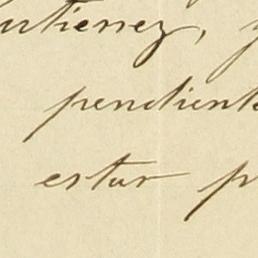 utierrez, y
pendiente
estar p